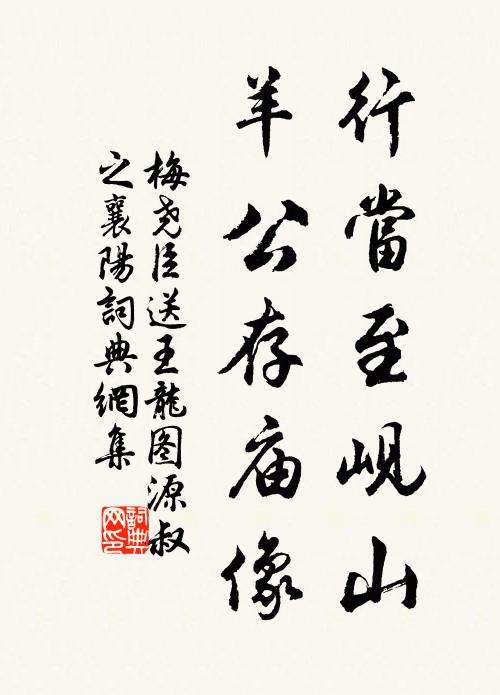 行當至峴山
羊公存庙像
梅尧臣送王龍图源叔
之襄陽詞典網集
詞典
网印